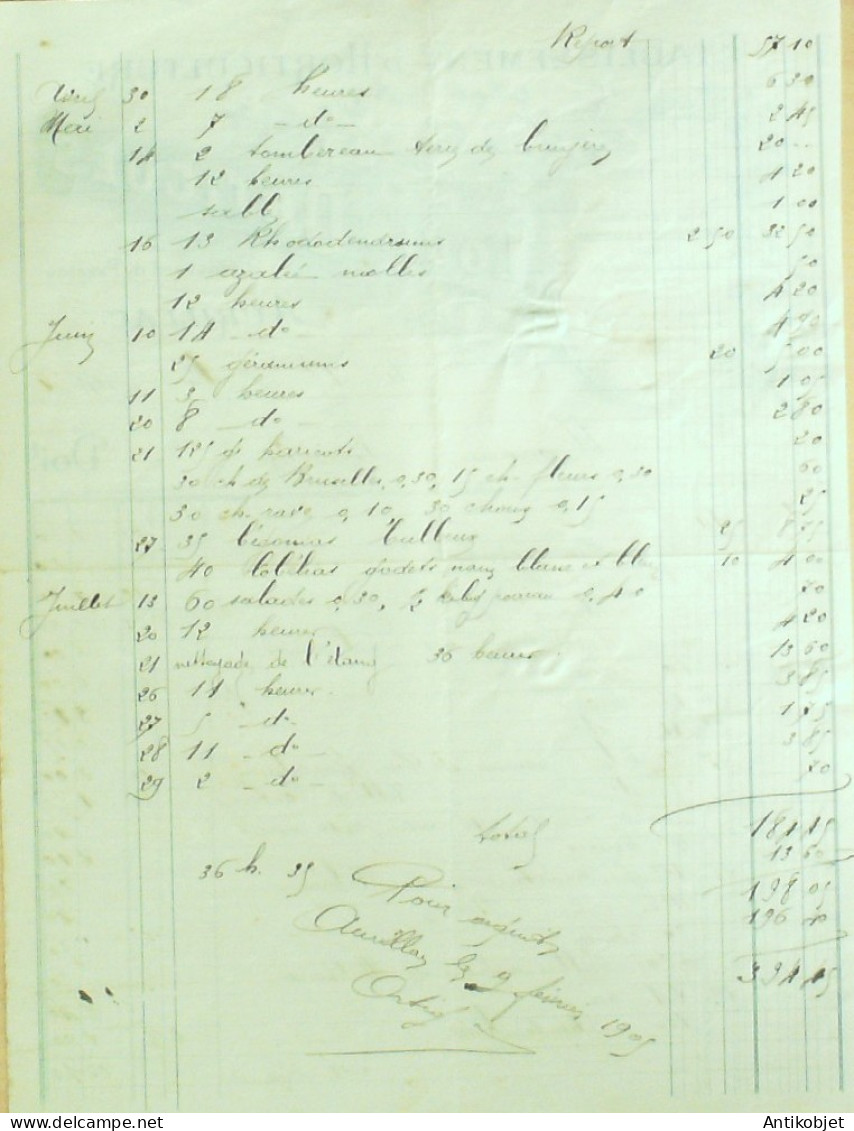 Report 57 10
30 18 heures 6 30
Mai 2 7 - do - 2 45
14 2 tombereau terre de bruyère 20 --
12 heures 4 20
1 00
16 13 Rhododendrums 2 50 32 50
1 azalée molles 50
12 heures 4 20
Juin 10 14 - do - 4 90
25 géraniums 20 5 00
11 3 heures 1 05
20 8 - do - 2 80
21 125 20
30 ch de Bruxelles, 0,30, 15 ch. fleurs 0,30 60
30 ch. rave 0,10, 30 choux 0,15 25
27 35 25 8 75
40 lobélias godets nain blanc et bleu 10 4 00
Juillet 13 60 salades 0,30, 0,40 70
20 12 heures 4 20
21 nettoyade de l'étang 36 heures. 13 60
26 11 heures. 3 85
27 5 - do - 1 75
28 11 - do - 3 85
29 2 - do - 70
total 184 45
36 h. 35 13 60
198 05
Pour acquit 196 40
Aurillac le 9 février 1905
394 45
Antikobjet